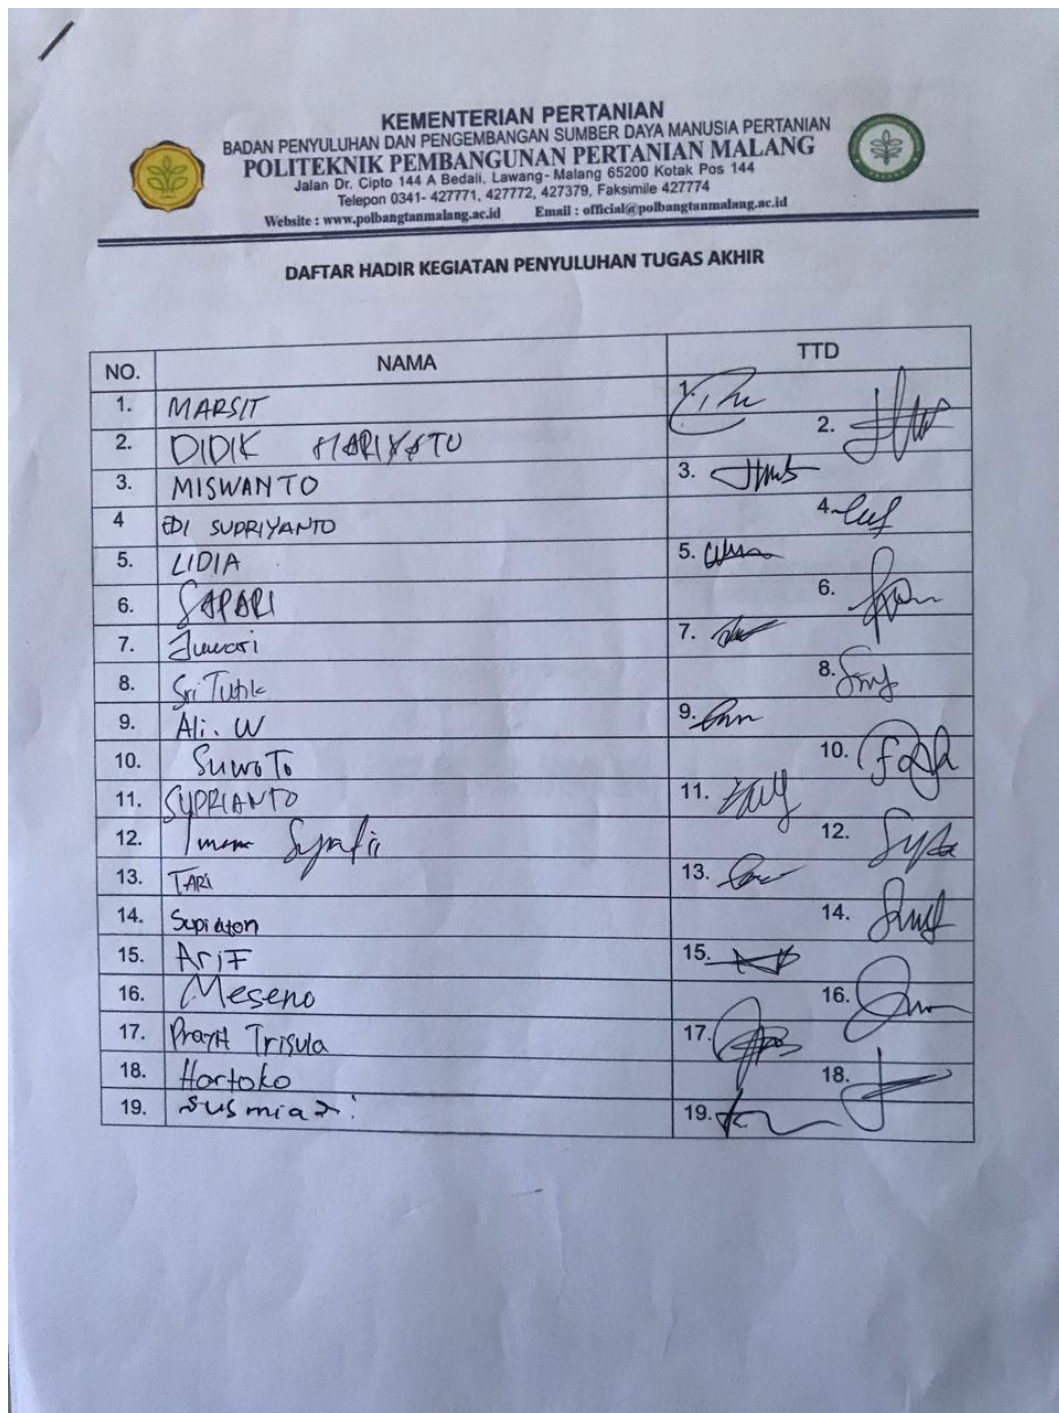 KEMENTERIAN PERTANIAN
BADAN PENYULUHAN DAN PENGEMBANGAN SUMBER DAYA MANUSIA PERTANIAN
POLITEKNIK PEMBANGUNAN PERTANIAN MALANG
Jalan Dr. Cipto 144 A Bedali, Lawang- Malang 65200 Kotak Pos 144
Telepon 0341- 427771, 427772, 427379, Faksimile 427774
Website : www.polbangtanmalang.ac.id Email : official@polbangtanmalang.ac.id
DAFTAR HADIR KEGIATAN PENYULUHAN TUGAS AKHIR
NO. NAMA TTD
1. MARSIT 1.
2. DIDIK HARIYATO 2.
3. MISWANTO 3.
4 EDI SUPRIYANTO 4.
5. LIDIA 5.
6. SAPARI 6.
7. Juwari 7.
8. Sri Tutik 8.
9. Ali. W 9.
10. SuwoTo 10.
11. SUPRIANTO 11.
12. Imam Syafii 12.
13. TARI 13.
14. Supiaton 14.
15. AriF 15.
16. Meseno 16.
17. Trisula 17.
18. Hartoko 18.
19. 19.